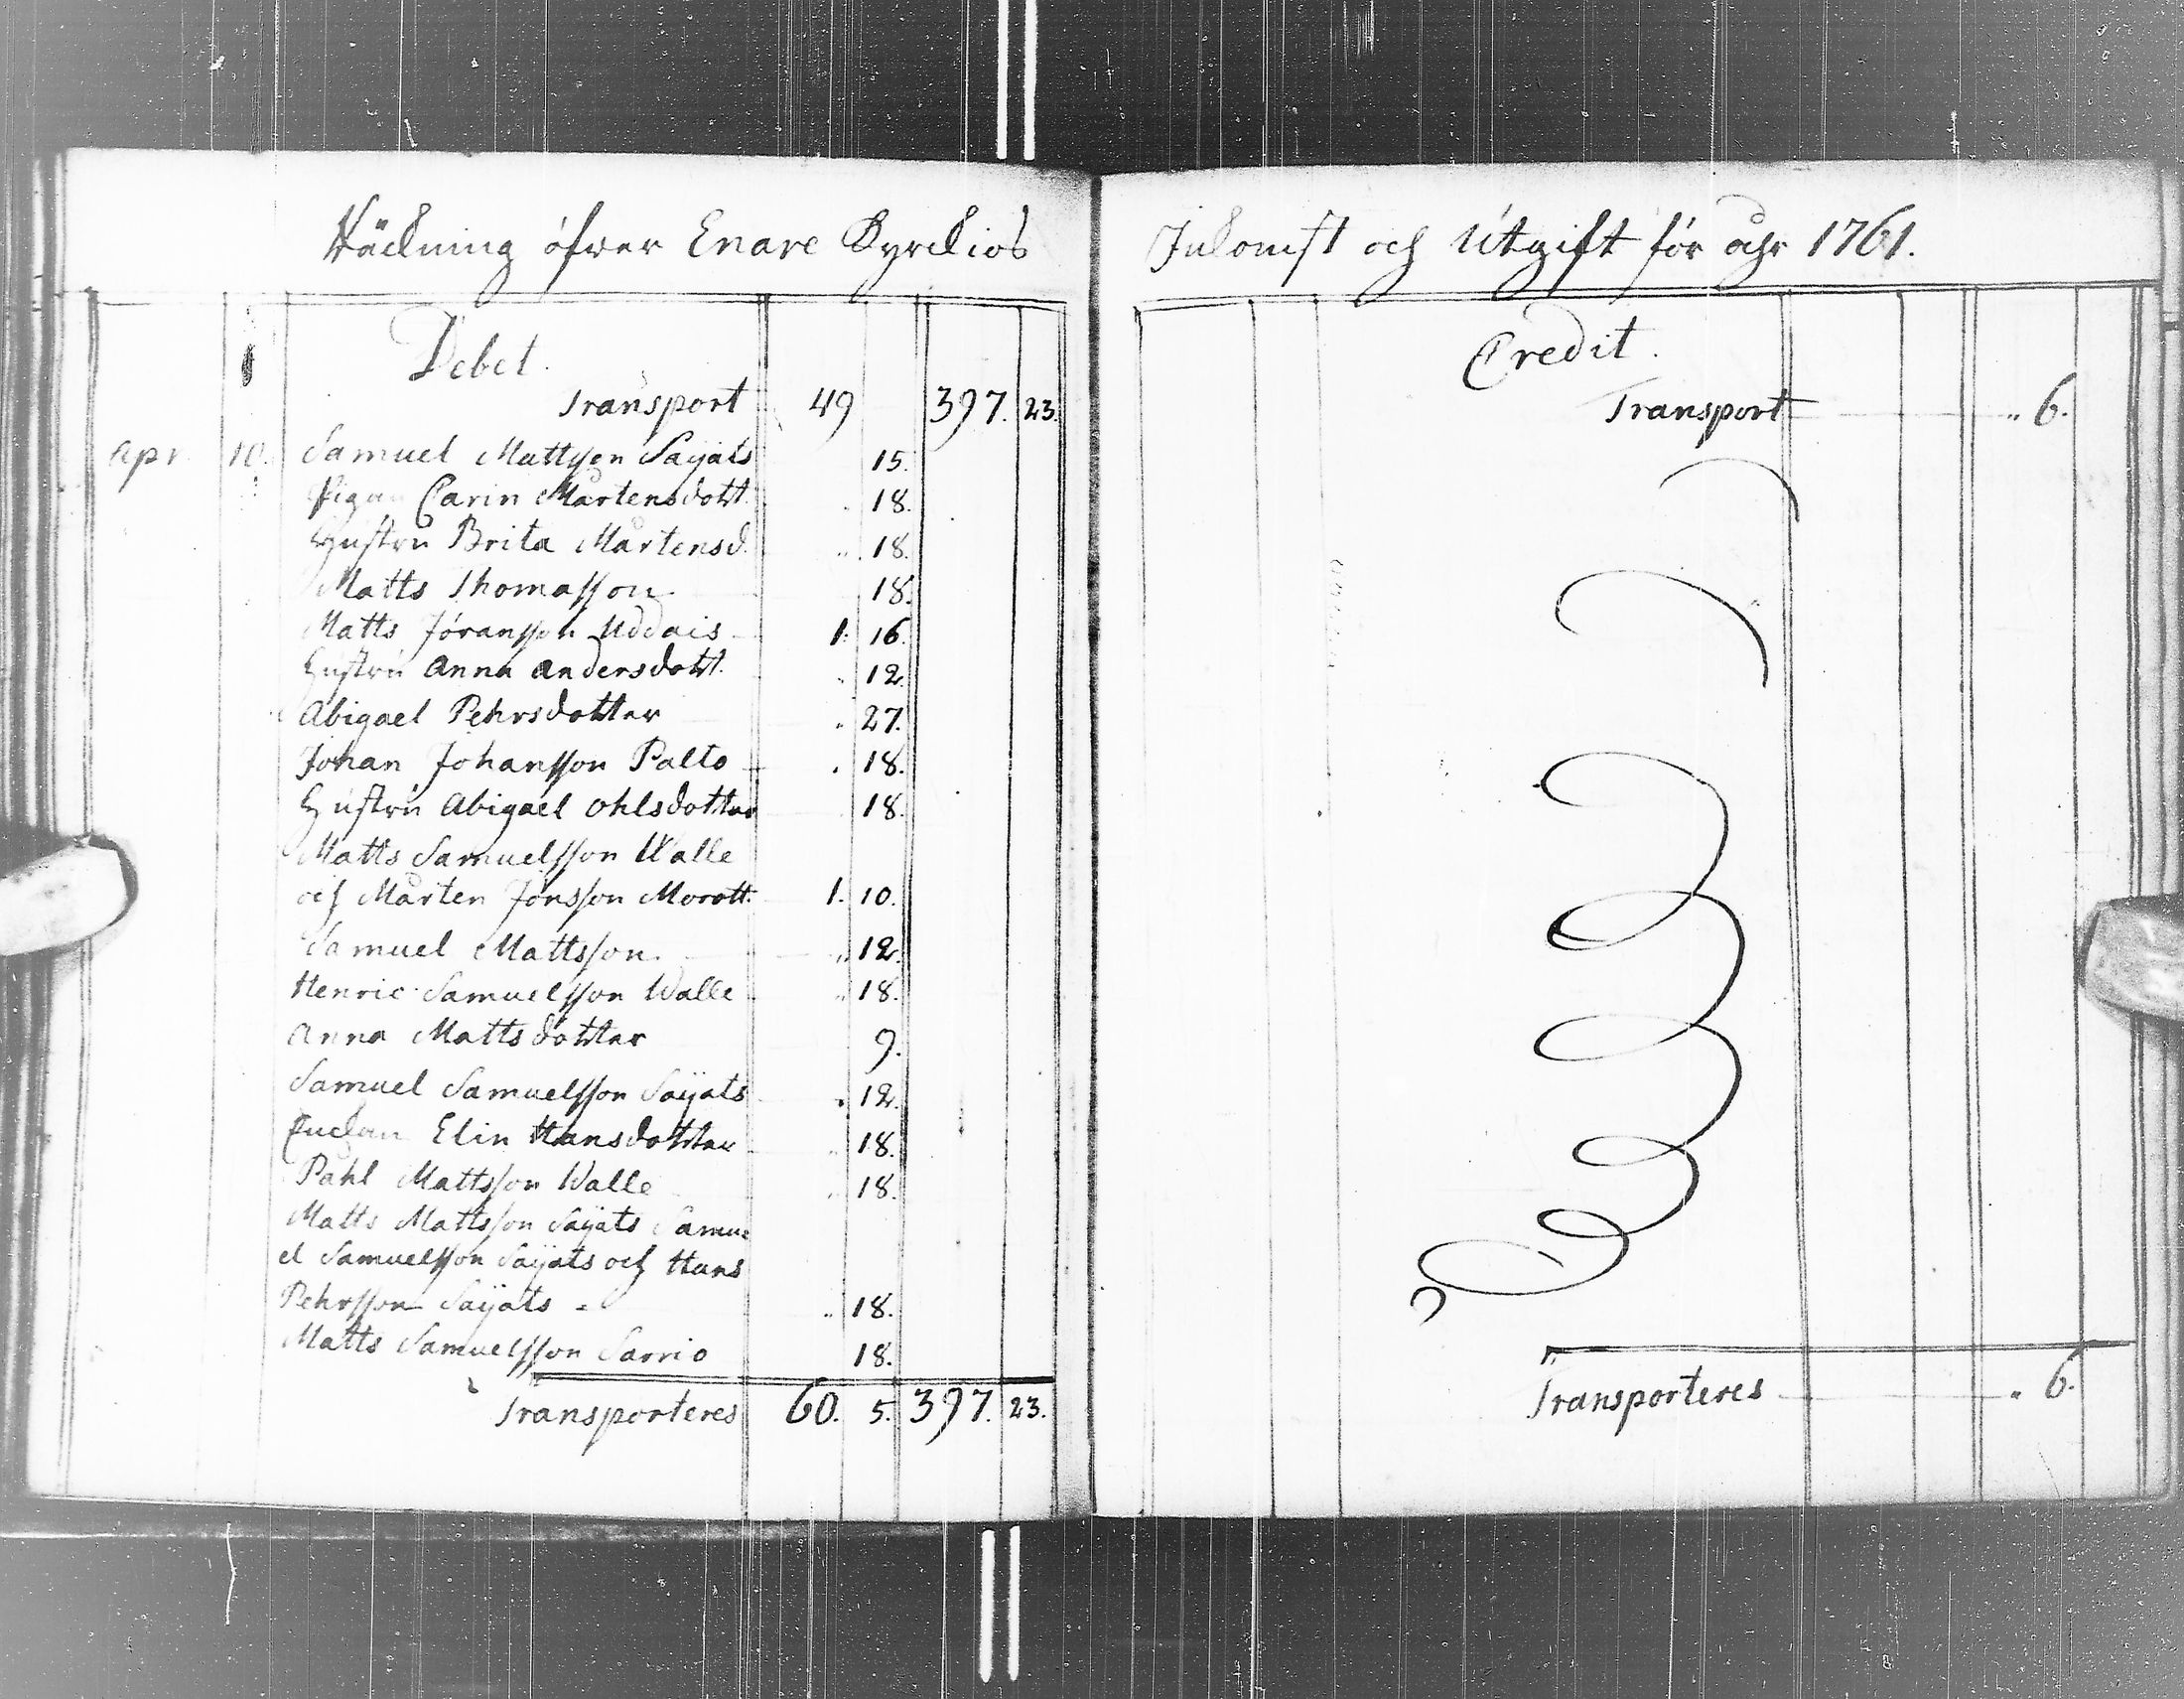 Räckning öfwer Enare Kyrckios
Debet.
Transport 49 397. 23.
Apr. 10. Samuel Mattsson Sajats 15.
Pigan Carin Mårtensdott. 18.
Hustru Brita Mårtensd. 18.
Matts Thomasson 18.
Matts Jöransson Uddais 1. 16.
Hustru Anna Andersdott. 12.
Abigael Pehrsdotter 27.
Johan Johansson Palto 18.
Hustru Abigael Ohlsdotter 18.
Matts Samuelsson Walle
och Mårten Jönsson Morott. 1. 10.
Samuel Mattsson. 12.
Henric Samuelsson Walle 18.
Anna Mattsdotter 9.
Samuel Samuelsson Sajats 12.
Enckan Elin Hansdotter 18.
Påhl Mattsson Walle 18.
Matts Mattsson Sajats Samu=
el Samuelsson Sajats och Hans
Pehrsson Sajats = 18.
Matts Samuelsson Sarrio 18.
Transporteres 60. 5. 397. 23.
Inkomst och Utgift för åhr 1761.
Credit.
Transport " 6.
Transporteres " 6.